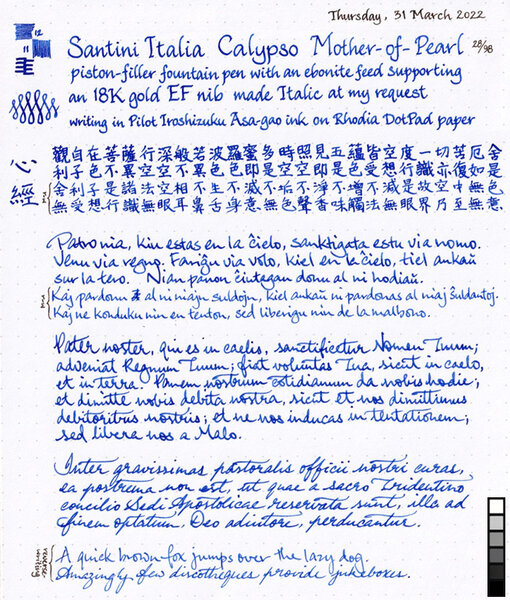 Thursday, 31 March 2022
12
11
Santini Italia Calypso Mother-of-Pearl 28/98
piston-filler fountain pen with an ebonite feed supporting
an 18K gold EF nib made Italic at my request
writing in Pilot Iroshizuku Asa-gao ink on Rhodia DotPad paper
心經
觀自在菩薩行深般若波羅蜜多時照見五蘊皆空度一切苦厄舍
利子色不異空空不異色色即是空空即是色受想行識亦復如是
舍利子是諸法空相不生不滅不垢不淨不增不減是故空中無色
無受想行識無眼耳鼻舌身意無色聲香味觸法無眼界乃至無意
Patro nia, kiu estas en la ĉielo, sanktigata estu via nomo.
Venu via regno. Fariĝu via volo, kiel en la ĉielo, tiel ankaŭ
sur la tero. Nian panon ĉiutagan donu al ni hodiaŭ.
Kaj pardonu al ni niajn ŝuldojn, kiel ankaŭ ni pardonas al niaj ŝuldantoj.
Kaj ne konduku nin en tenton, sed liberigu nin de la malbono.
Pater noster, qui es in caelis, sanctificetur Nomen Tuum;
adveniat Regnum Tuum; fiat voluntas Tua, sicut in caelo,
et in terra. Panem nostrum cotidianum da nobis hodie;
et dimitte nobis debita nostra, sicut et nos dimittimus
debitoribus nostris; et ne nos inducas in tentationem;
sed libera nos a Malo.
Inter gravissimas pastoralis officii nostri curas,
ea postrema non est, ut quae a sacro Tridentino
concilio Sedi Apostolicae reservata sunt, illa ad
finem optatum, Deo adiutore, perducantur.
reverse-writing
A quick brown fox jumps over the lazy dog.
Amazingly few discotheques provide jukeboxes.